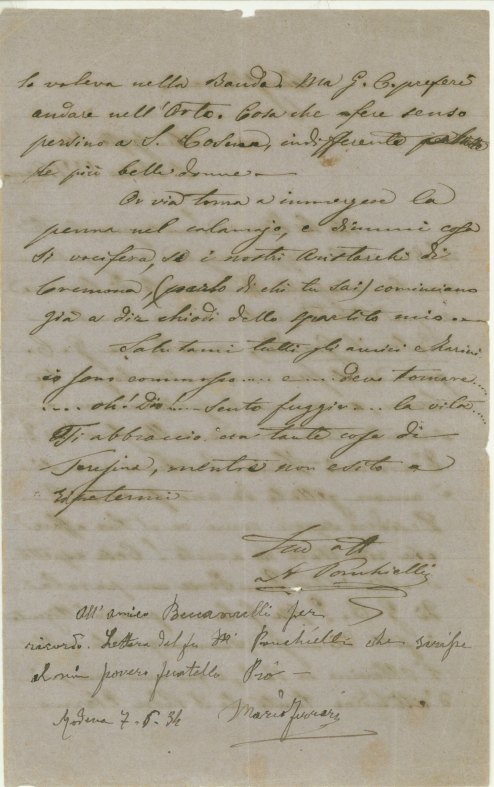 lo voleva nella Banda. Ma G. C. preferì
andare nell'Orto. Cosa che fece senso
persino a S. indifferente
le più belle donne —
Or via torna a immergere la
penna nel calamajo, e dimmi cosa
si vocifera, se i nostri Aristarchi di
Cremona, (parlo di chi tu sai) cominciano
già a dir chiodi dello spartito mio —
Salutami tutti gli amici e Marini
io sono commosso .... e .... devo tornare ....
.... oh! Dio! .... sento fuggir .... la vita ....
Ti abbraccio con tante cose di
Teresina, mentre non esito a
ripetermi
Tuo aff
A Ponchielli
All'amico per
ricordo. Lettera del fu M° Ponchielli che scrisse
al mio povero fratello Pio —
Modena 7. 6. 34 Mario